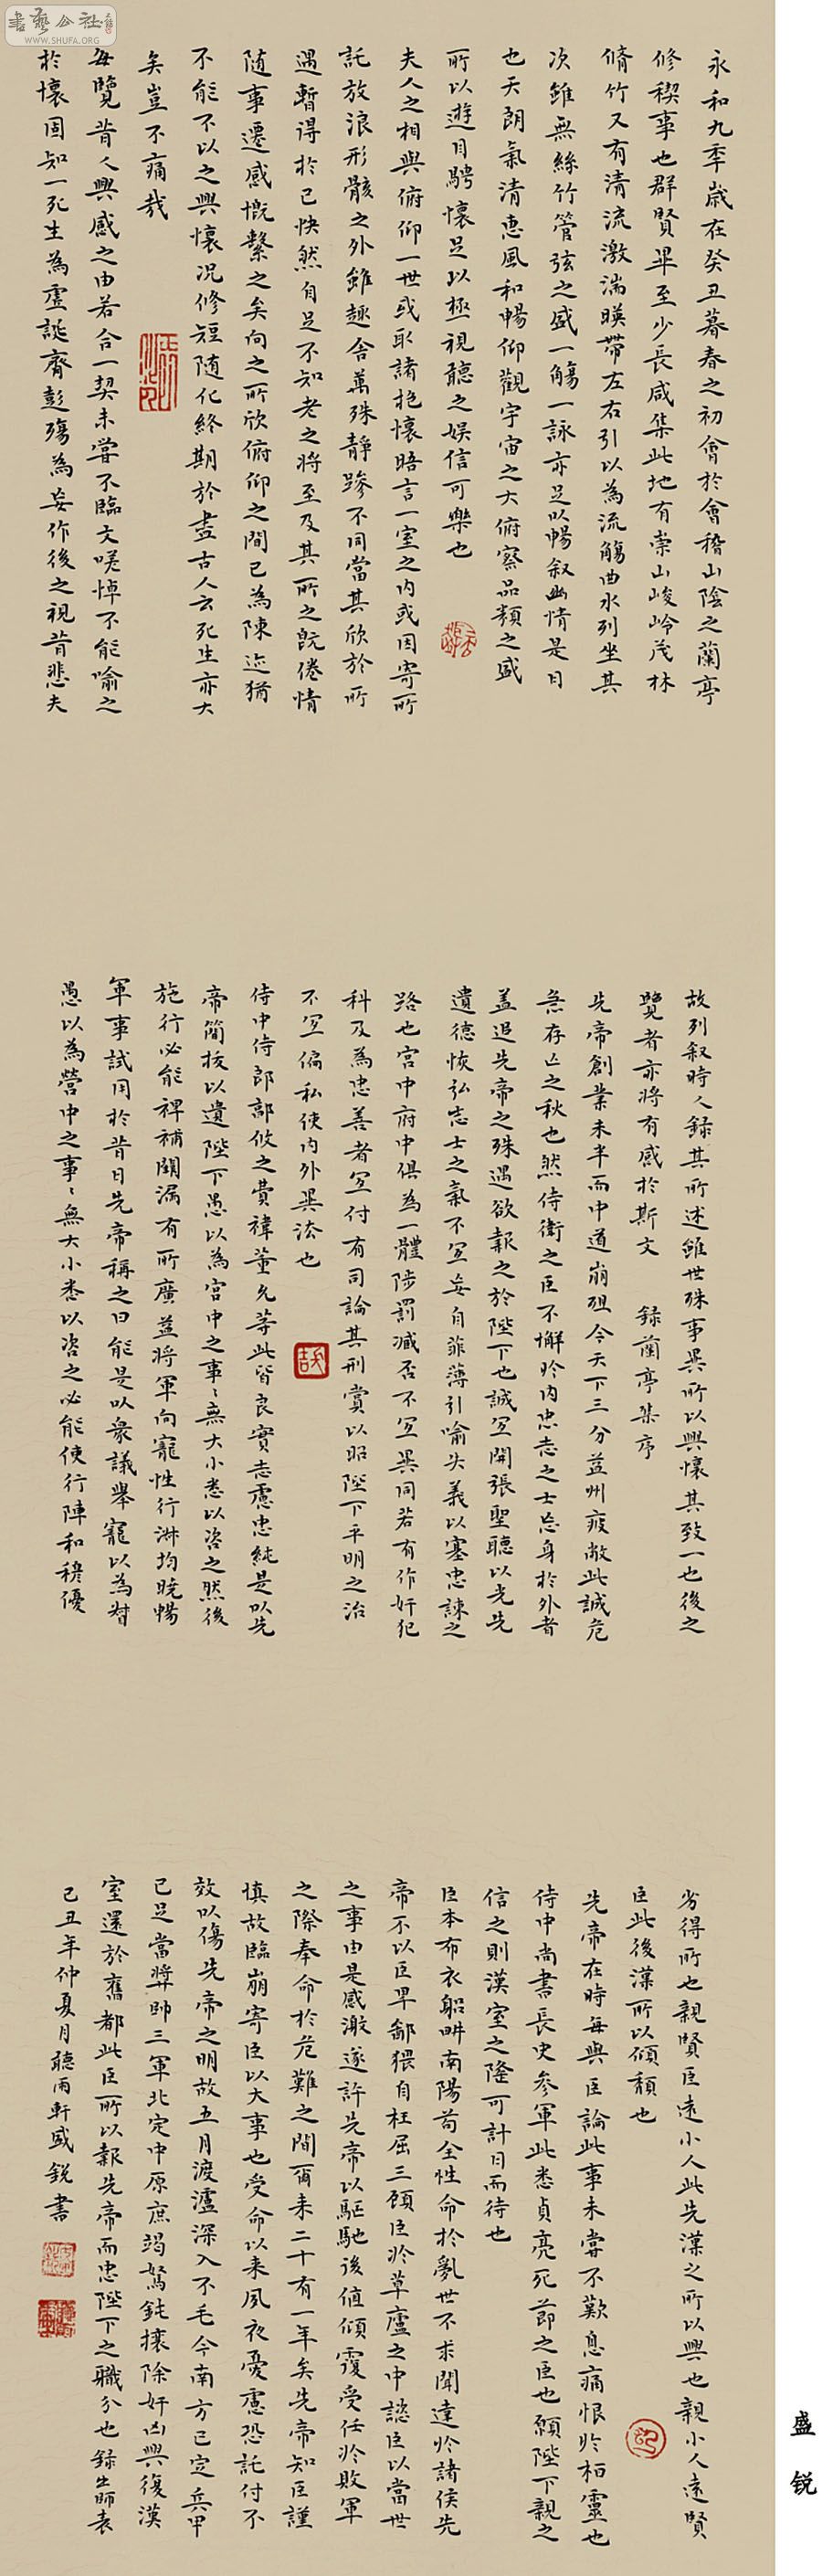 書藝公社
WWW.SHUFA.ORG
永和九季歲在癸丑暮春之初會於會稽山陰之蘭亭
修稧事也群賢畢至少長咸集此地有崇山峻岭茂林
脩竹又有清流激湍暎帶左右引以為流觴曲水列坐其
次雖無絲竹管弦之盛一觴一詠亦足以暢叙幽情是日
也天朗氣清惠風和暢仰觀宇宙之大俯察品類之盛
所以遊目騁懷足以極視聽之娛信可樂也
夫人之相與俯仰一世或取諸抱懷晤言一室之內或因寄所
託放浪形骸之外雖趣舍萬殊靜躁不同當其欣於所
遇暫得於己快然自足不知老之將至及其所之既倦情
随事遷感慨繫之矣向之所欣俯仰之間已為陳迹猶
不能不以之興懷況修短随化終期於盡古人云死生亦大
矣豈不痛哉
每覽昔人興感之由若合一契未嘗不臨文嗟悼不能喻之
於懷固知一死生為虛誕齊彭殤為妄作後之視昔悲夫
故列叙時人録其所述雖世殊事異所以興懷其致一也後之
覽者亦將有感於斯文 録蘭亭集序
先帝創業未半而中道崩殂今天下三分益州疲敝此誠危
急存亡之秋也然侍衛之臣不懈於内忠志之士忘身於外者
盖追先帝之殊遇欲報之於陛下也誠宜開張聖聽以光先
遺德恢弘志士之氣不宜妄自菲薄引喻失義以塞忠諫之
路也宮中府中俱為一體陟罰臧否不宜異同若有作奸犯
科及為忠善者宜付有司論其刑賞以昭陛下平明之治
不宜偏私使内外異法也
侍中侍郎郭攸之費禕董允等此皆良實志慮忠純是以先
帝簡拔以遺陛下愚以為宮中之事〻無大小悉以咨之然後
施行必能裨補闕漏有所廣益將軍向寵性行淋均曉暢
軍事試用於昔日先帝稱之曰能是以衆議舉寵以為督
愚以為營中之事〻無大小悉以咨之必能使行陣和穆優
劣得所也親賢臣遠小人此先漢之所以興也親小人遠賢
臣此後漢所以傾頹也
先帝在時每與臣論此事未嘗不歎息痛恨於桓靈也
侍中尚書長史參軍此悉貞亮死節之臣也願陛下親之
信之則漢室之隆可計日而待也
臣本布衣躬畊南陽苟全性命於亂世不求聞達於諸侯先
帝不以臣卑鄙猥自枉屈三顧臣於草廬之中諮臣以當世
之事由是感激遂許先帝以驅馳後值傾覆受任於敗軍
之際奉命於危難之間爾来二十有一年矣先帝知臣謹
慎故臨崩寄臣以大事也受命以来夙夜憂慮恐託付不
效以傷先帝之明故五月渡瀘深入不毛今南方已定兵甲
已足當獎帥三軍北定中原庶竭駑鈍攘除奸凶興復漢
室還於舊都此臣所以報先帝而忠陛下之職分也録出師表
己丑年仲夏月聽雨軒盛銳書
盛锐